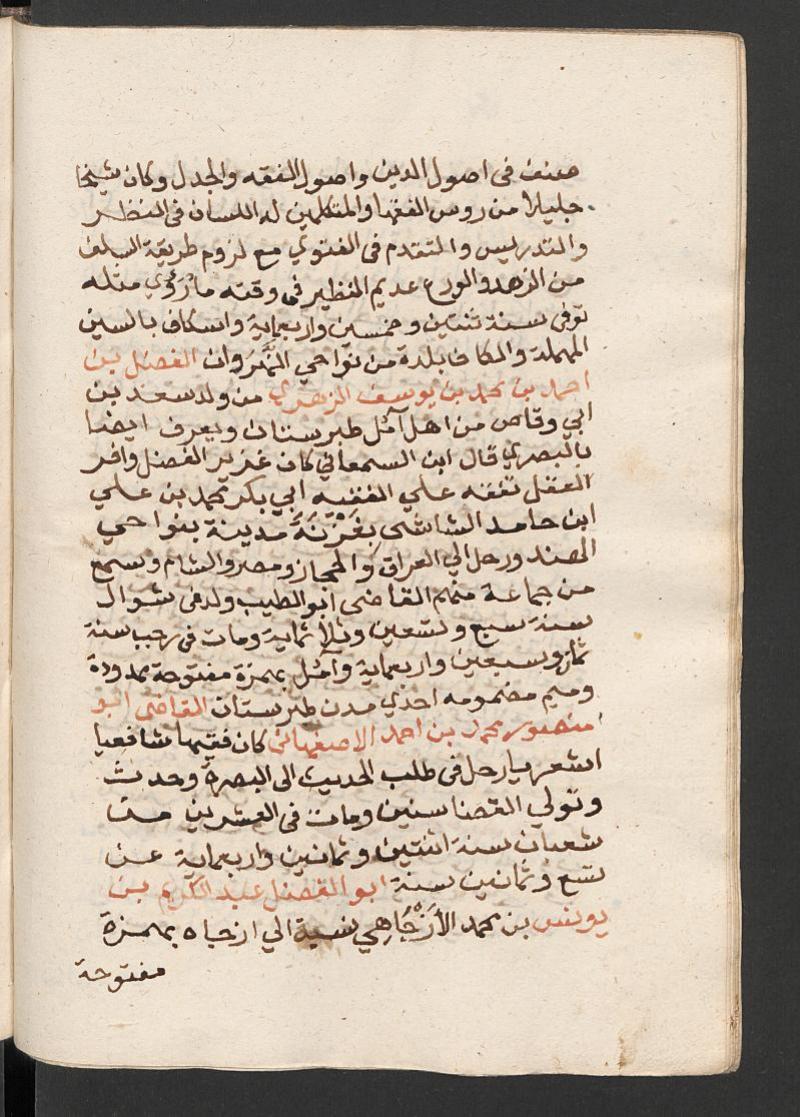 صنف فى اصول الدين واصول الفقه والجدل وكان شيخا
جليلا من روس الفقها والمتكلمين له اللسان فى النظر
والتدريس والتقدم فى الفتوي مع لزوم طريقة السلف
من الزهد والورع عديم النظير فى وقته ما رُؤي مثله
توفى سنة ثنتين وخمسين واربعماية واسكاف بالسين
المهملة والكاف بلدة من نواحي النهروان الفضل بن
احمد بن محمد بن يوسف الزهري من ولد سعد بن
ابي وقاص من اهل آمل طبرستان ويعرف ايضا
بالبصري قال ابن السمعاني كان غزير الفضل وافر
العقل تفقه علي الفقيه ابي بكر محمد بن علي
ابن حامد الشاشى بغَزْنَةَ مدينة بنواحي
الهند ورحل الي العراق والحجاز ومصر والشام وسمع
من جماعة منهم القاضى ابو الطيب ولد فى شوال
سنة سبع وتسعين وثلاثماية ومات فى رجب سنة
ثمان وسبعين واربعماية وآمل بهمزة مفتوحة ممدودة
وميم مضمومه احدي مدن طبرستان القاضى ابو
منصور محمد بن احمد الاصفهانى كان فقيها شافعيا
اشعريا رحل فى طلب الحديث الى البصرة وحدث
وتولي القضا سنين ومات فى العشرين من
شعبان سنة اثنتين وثمانين واربعماية عن
تسع وثمانين سنة ابو الفضل عبد الكريم بن
يونس بن محمد الأَزْجَاهِي نسبة الي ازجاه بهمزة
مفتوحة